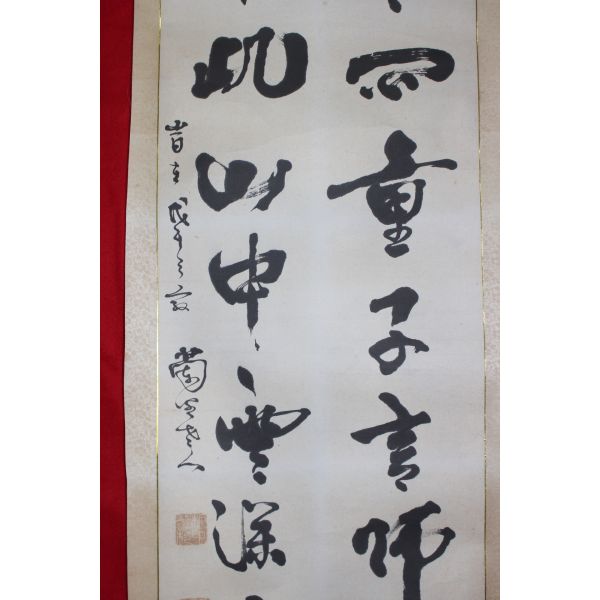 問童子言師
此山中雲深
旹在戊午之
蘭谷老人